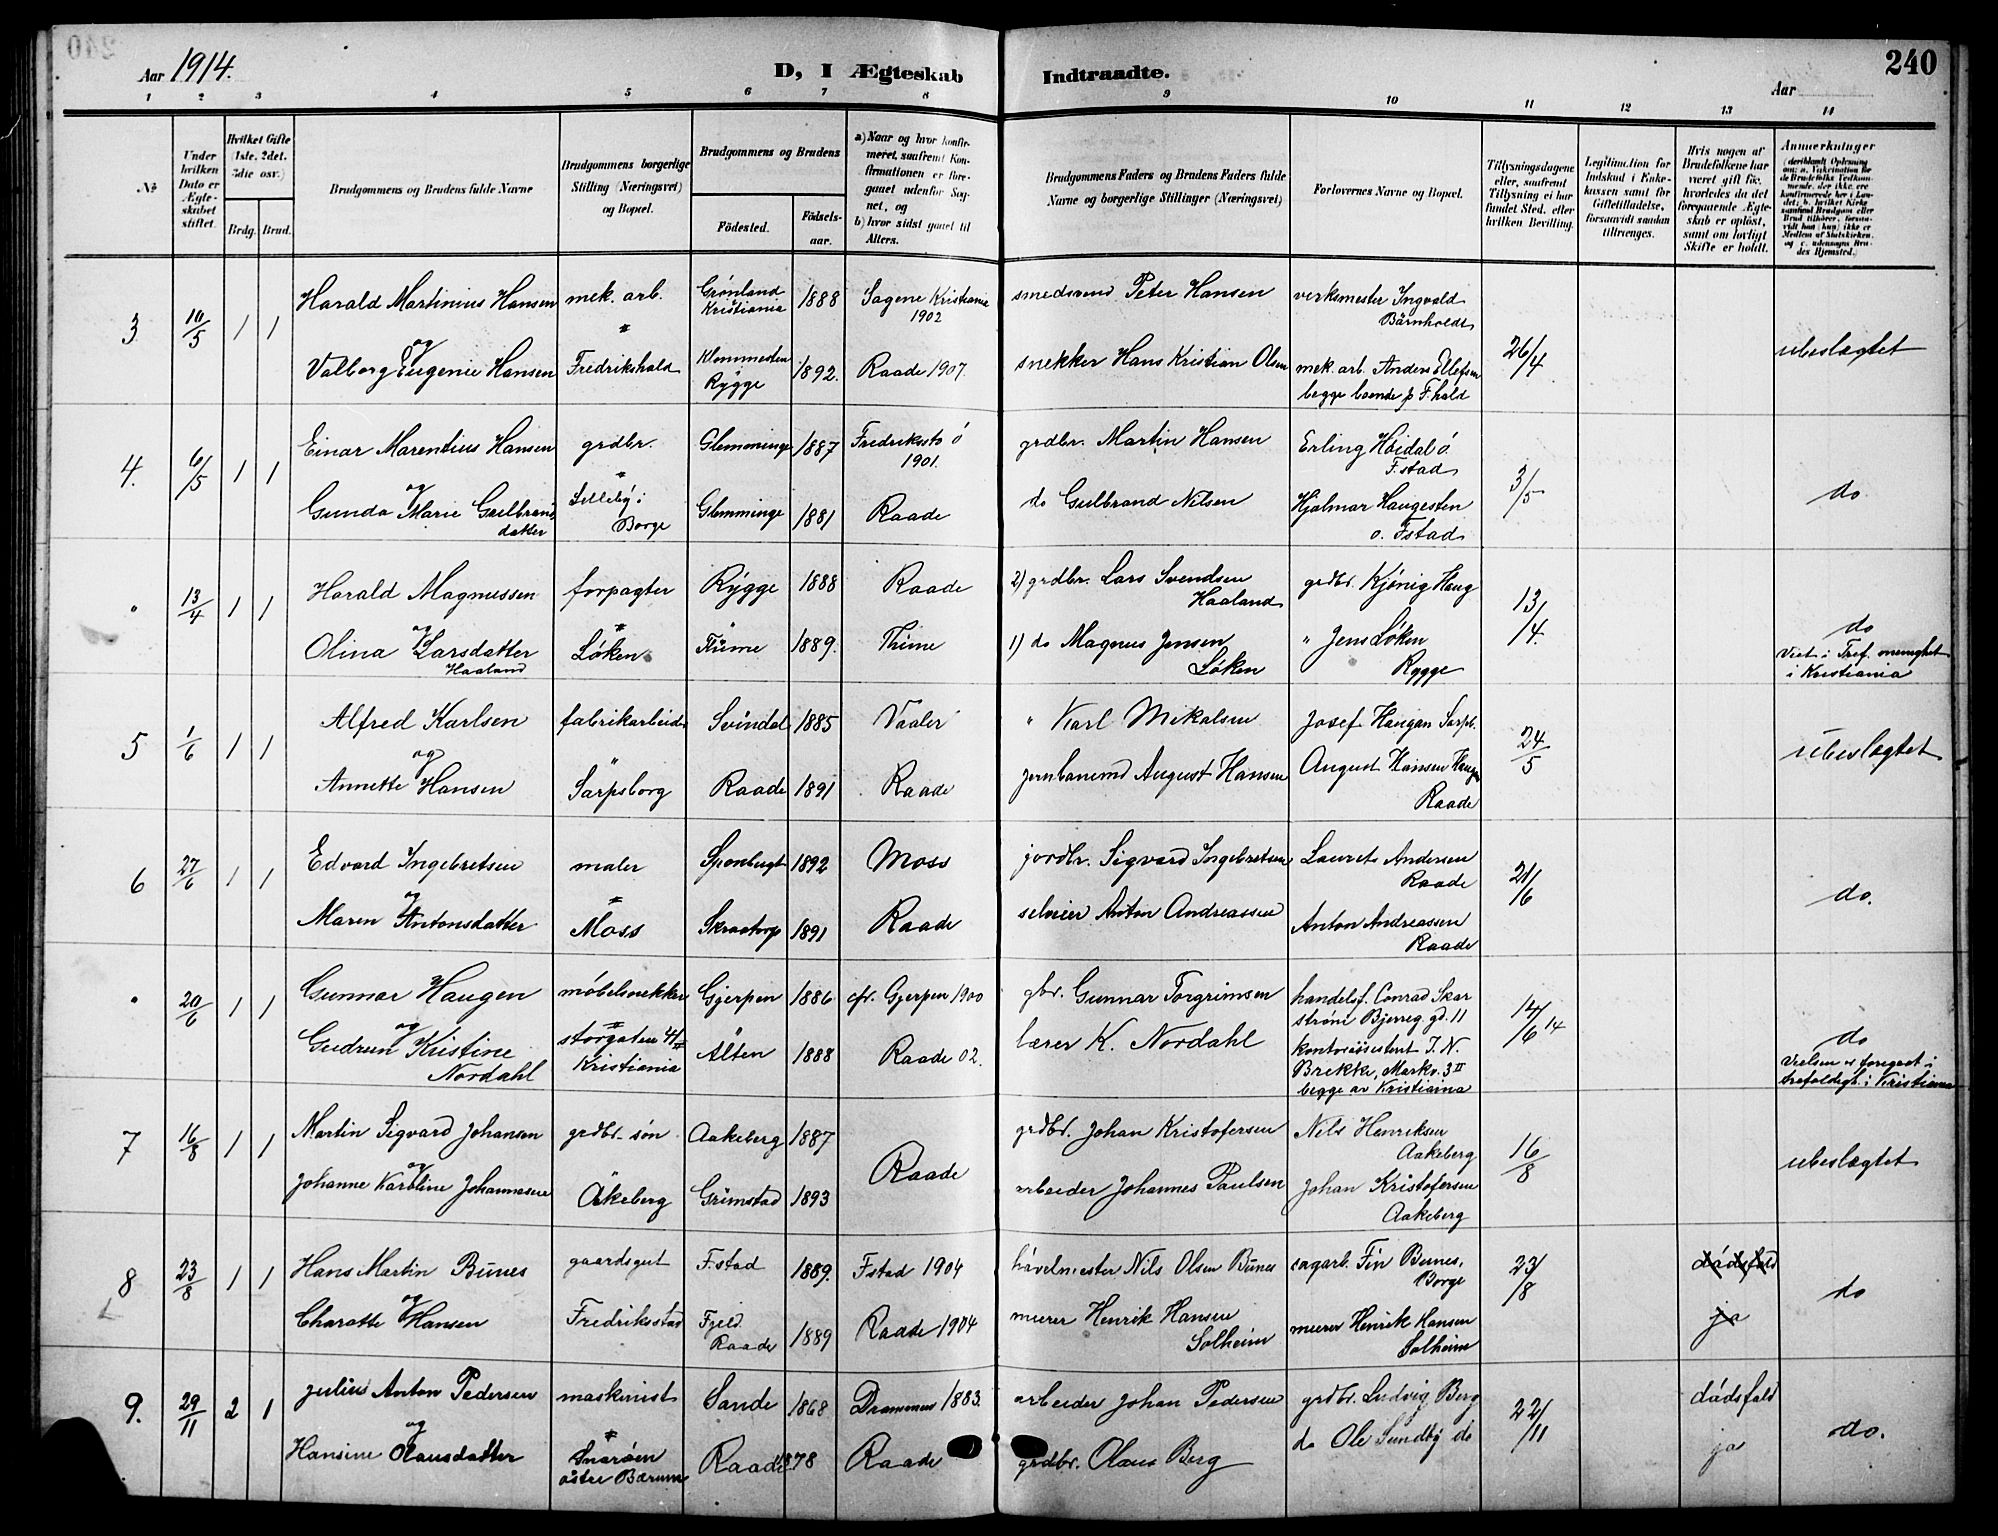 240
Aar 1914.
D, I Ægteskab
Indtraadte.
Aar
1 2 3 4 5 6 7 8 9 10 11 12 13 14
No
Under hvilken Dato er Ægteskabet stiftet.
Hvilket Gifte (1ste, 2det, 3die osv.)
Brdg. Brud.
Brudgommens og Brudens fulde Navne
Brudgommens borgerlige Stilling (Næringsvei) og Bopæl.
Brudgommens og Brudens
Fødested.
Fødselsaar.
a) Naar og hvor konfirmeret, saafremt Konfirmationen er foregaaet udenfor Sognet, og
b) hvor sidst gaaet til Alters.
Brudgommens Faders og Brudens Faders fulde Navne og borgerlige Stillinger (Næringsvei)
Forlovernes Navne og Bopæl.
Tillysningsdagene eller, saafremt Tillysning ei har fundet Sted, efter hvilken Bevilling.
Legitimation for Indskud i Enkekassen samt for Giftetilladelse, forsaavidt saadan tiltrænges.
Hvis nogen af Brudefolkene har været gift før, hvorledes da det foregaaende Ægteskab er opløst, samt om lovligt Skifte er holdt.
Anmerkninger
3 10/5 1 1 Harald Martinius Hansen mek. arb. Grønland Kristiania 1888 Sagene Kristiania 1902 smedsvend Peter Hansen verksmester Ingvald Bärnholdt 26/4 ubeslægtet
og
Valborg Eugenie Hansen Fredrikshald Rygge 1892. Raade 1907. snekker Hans Kristian Olsen mek. arb. Anders Ellefsen begge boende p F.hald
4. 6/5 1 1 Einar Marentius Hansen grdbr. Glemminge 1887 Fredriksst ó 1901. grdbr. Martin Hansen Erling Höidal ó. F.stad 3/5 do
og
Gunda Marie Gulbrandsdatter Lilleby i Borge Glemminge 1881 Raade do Gulbrand Nilsen Hjalmar Haugesten o. Fstad
" 13/4 1 1 Harald Magnussen forpagter Rygge 1888 Raade 2) grdbr. Lars Svendsen Haaland grdbr. Kjönig Haug 13/4. do
og
Olina Larsdatter Haaland Løken Thime 1889. Thime 1) do Magnus Jensen Løken " Jens Løken Rygge Viet i Tref. menighet i Kristiania
5 1/6 1 1 Alfred Karlsen fabrikarbeid. Svindal 1885 Vaaler " Karl Mikalsen Josef Haugan Sarpb. 24/5 ubeslægtet
og
Annette Hansen Sarpsborg Raade 1891 Raade jernbanemd August Hansen August Hansen Raade
6 27/6 1 1 Edvard Ingebretsen maler Sponbugt 1892 Moss jordbr. Sigvard Ingebretsen Laurets Andersen Raade 21/6 do.
og
Maren Antonsdatter Moss Skraatorp 1891 Raade selveier Anton Andreassen Anton Andreassen Raade
" 20/6 1 1 Gunnar Haugen møbelsnekker Gjerpen 1886 cfr. Gjerpen 1900 gbr. Gunnar Torgrimsen handelsf. Conrad Skarstrøm Bjerreg. gd. 11 14/6 14 do
og
Gudrun Kristine Nordahl storgaten 41 Kristiania Alten 1888 Raade 02. lærer K. Nordahl kontorassistent J. N. Brekke, Markv. 3 II begge av Kristiania Vielsen er foregaat i trefoldigh. i Kristiania
7 16/8 1 1 Martin Sigvard Johansen grdbr. søn Aakeberg 1887 Raade grdbr. Johan Kristofersen Nils Henriksen Aakeberg 16/8 ubeslægtet
og
Johanne Karoline Johannesen Åkeberg Grimstad 1893 arbeider Johannes Paulsen Johan Kristofersen Aakeberg
8 23/8 1 1 Hans Martin Bunes gaardsgut F.stad 1889. Fstad 1904 høvelmester Nils Olsen Bunes sagarb. Fin Bunes, Borge 23/8 dødsfald do
og
Charotte Hansen Fredriksstad Fjeld Raade 1889 Raade 1904 murer Henrik Hansen Solheim murer Henrik Hansen Solheim ja
9. 29/11 2 1 Julius Anton Pedersen maskinist Sande 1868 Drammen 1883. arbeider Johan Pedersen grdbr. Ludvig Berg 22/11 dødsfald do.
og
Hansine Olausdatter Snarøen østre Bærum Raade 1878 Raade grdbr. Olaus Berg do Ole Sundby do ja